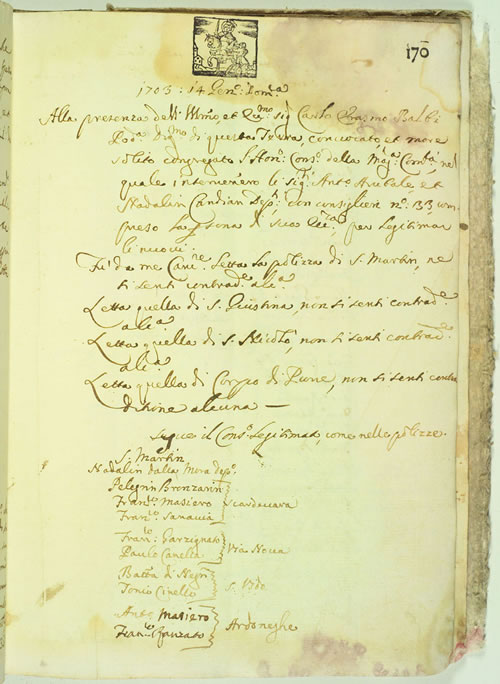 170
1703 : 14 Gen: Dom:ca
Alla presenza dell' Illmo, et Ecc:mo sig: Carlo Erasmo Balbi
Pod:à Deg:mo di questa Terra, convocato et more
solito congregato l'Hon: Cons:o della Mag:ca Com:tà, nel
quale intervenero li sig:ri Ant:o Anibale, et
Nadalin Candian Dep:ti con consiglieri n:o 33, com
preso la psona di sua Ecc:za per legitimar
li nuovi:
Fù da me Canc:re Letta la polizza di S. Martin, ne
si sentì contrad:ne alc:a
Letta quella di S. Giustina, non si sentì contrad:ne
alc:a
Letta quella di S. Nicolò, non si sentì contrad:ne
alc:a
Letta quella di Corpo di Pieve, non si sentì contra
ditione alcuna —
Segue il Cons:o Legitimat, come nelle polizze
S. Martin
Nadalin dalla Mora dep:o
Pelegrin Bronzarin
Fran:co Masiero Scardevara
Fran:co Sanavia
Fran:co Garzignato
Paulo Canella Via Nova
Batta di Negri
Tonio Cinello S. Vido
Ant:o Masiero
Fran:co Ganzato Ardoneghe